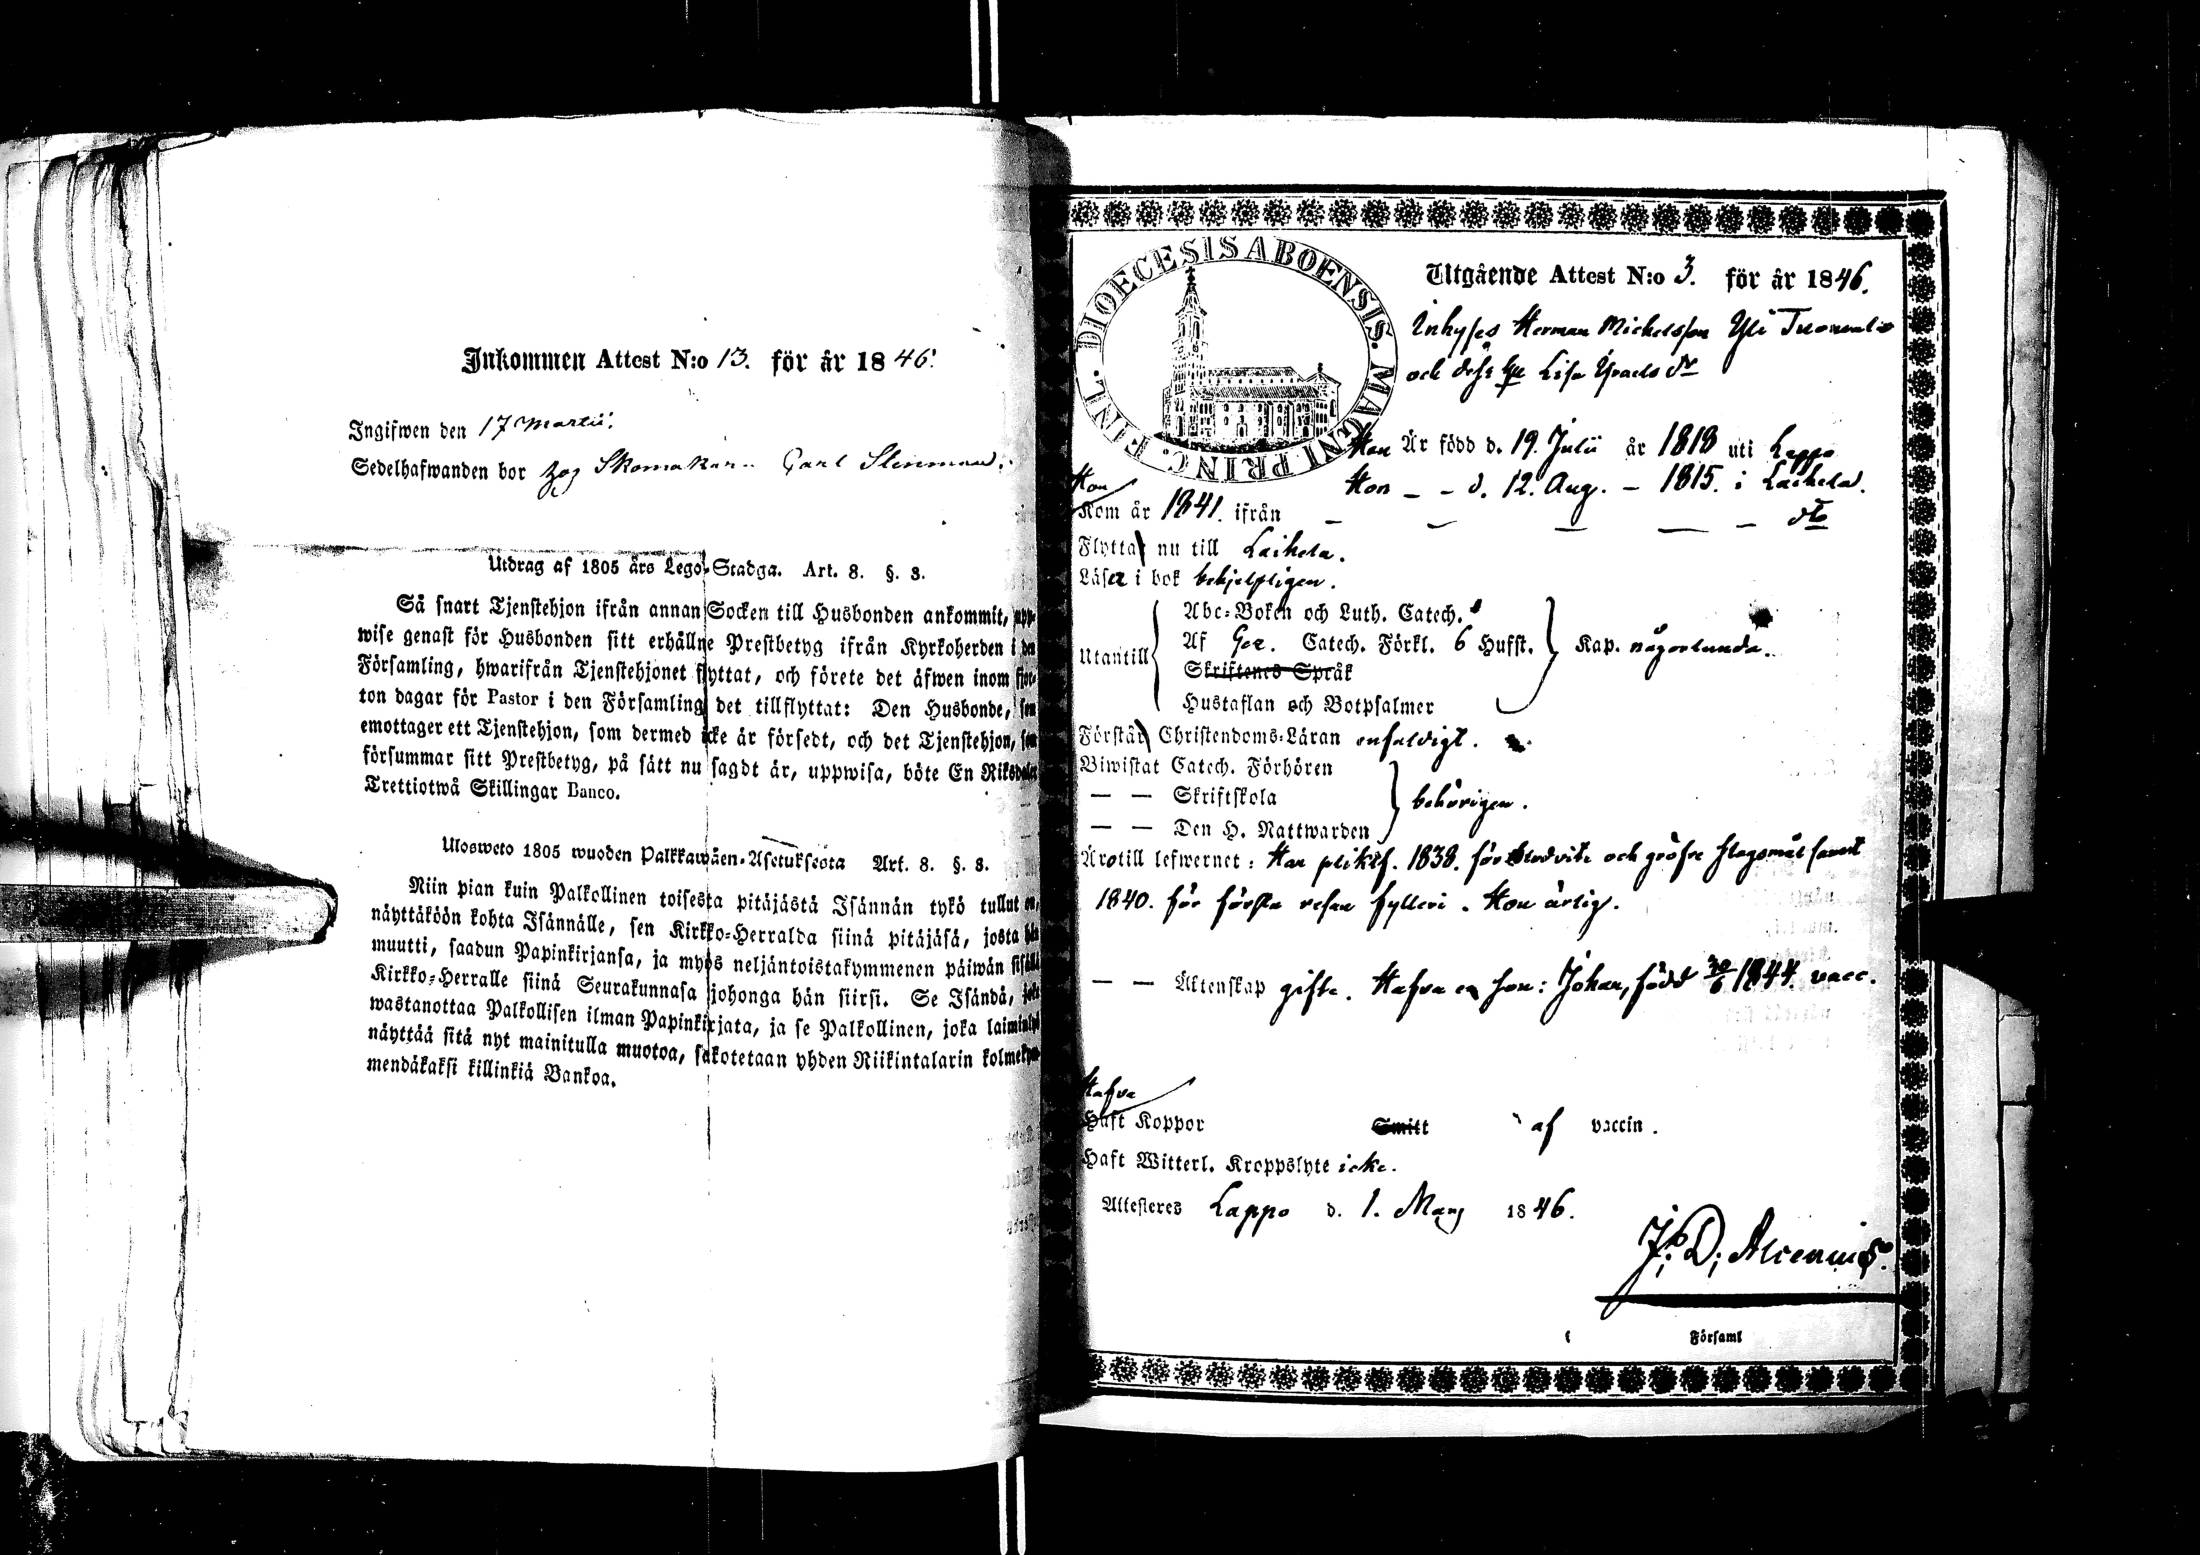 Inkommen Attest N:o 13. för år 1846.
Ingifwen den 17 Martii.
Sedelhafwanden bor hos Skomakare Carl Stenman.
Utdrag af 1805 års Lego-Stadga. Art. 8. §. 8.
Så snart Tjenstehjon ifrån annan Socken till Husbonden ankommit, upp-
wise genast för Husbonden sitt erhållne Prestbetyg ifrån Kyrkoherden i den
Församling, hwarifrån Tjenstehjonet flyttat, och förete det äfwen inom fjor-
ton dagar för Pastor i den Församling det tillflyttat: Den Husbonde, som
emottager ett Tjenstehjon, som dermed icke är försedt, och det Tjenstehjon, som
försummar sitt Prestbetyg, på sätt nu sagdt är, uppwisa, böte En Riksdaler
Trettiotwå Skillingar Banco.
Ulosweto 1805 wuoden Palkkawäen-Asetuksesta Art. 8. §. 8.
Niin pian kuin Palkollinen toisesta pitäjästä Isännän tykö tullut on,
näyttäköön kohta Isännälle, sen Kirkko-Herralda siinä pitäjäsä, josta hän
muutti, saadun Papinkirjansa, ja myös neljäntoistakymmenen päiwän sisällä
Kirkko-Herralle siinä Seurakunnasa johonga hän siirsi. Se Isändä, joka
wastanottaa Palkollisen ilman Papinkirjata, ja se Palkollinen, joka laiminlyö
näyttää sitä nyt mainitulla muotoa, sakotetaan yhden Riikintalarin kolmekym-
mendäkaksi killinkiä Bankoa.
DIOECESIS ABOENSIS. MAGNI PRINC. FINL.
Utgående Attest N:o 3. för år 1846.
Inhyses Herman Michelsson Yli Tuomala
och dess hu Lisa Israels dr
Han Är född d. 19. Julii år 1818 uti Lappo
Hon – – d. 12. Aug. – 1815. i Laihela.
Hon
Kom år 1841. ifrån – – – – – dto
Flytta nu till Laihela.
Läsa i bok behjelpligen.
Utantill
Abc-Boken och Luth. Catech.
Af Gez. Catech. Förkl. 6 Hufst. Kap. någorlunda.
Skriftenes Språk
Hustaflan och Botpsalmer
Förstå Christendoms-Läran enfaldigt.
Biwistat Catech. Förhören
— — Skriftskola behörigen.
— — Den H. Nattwarden
Äro till lefwernet: Han pliktf. 1838. för blodvite och gröfre slagsmål samt
1840. för första resan fylleri. Hon ärlig.
— — Äktenskap gifte. Hafva en son: Johan, född 30/6 1844. vacc.
Hafva
Haft Koppor Smitt af vaccin.
Haft Witterl. Kroppslyte icke.
Attesteres Lappo d. 1. Mars 1846.
J. D. Alcenius.
Församl